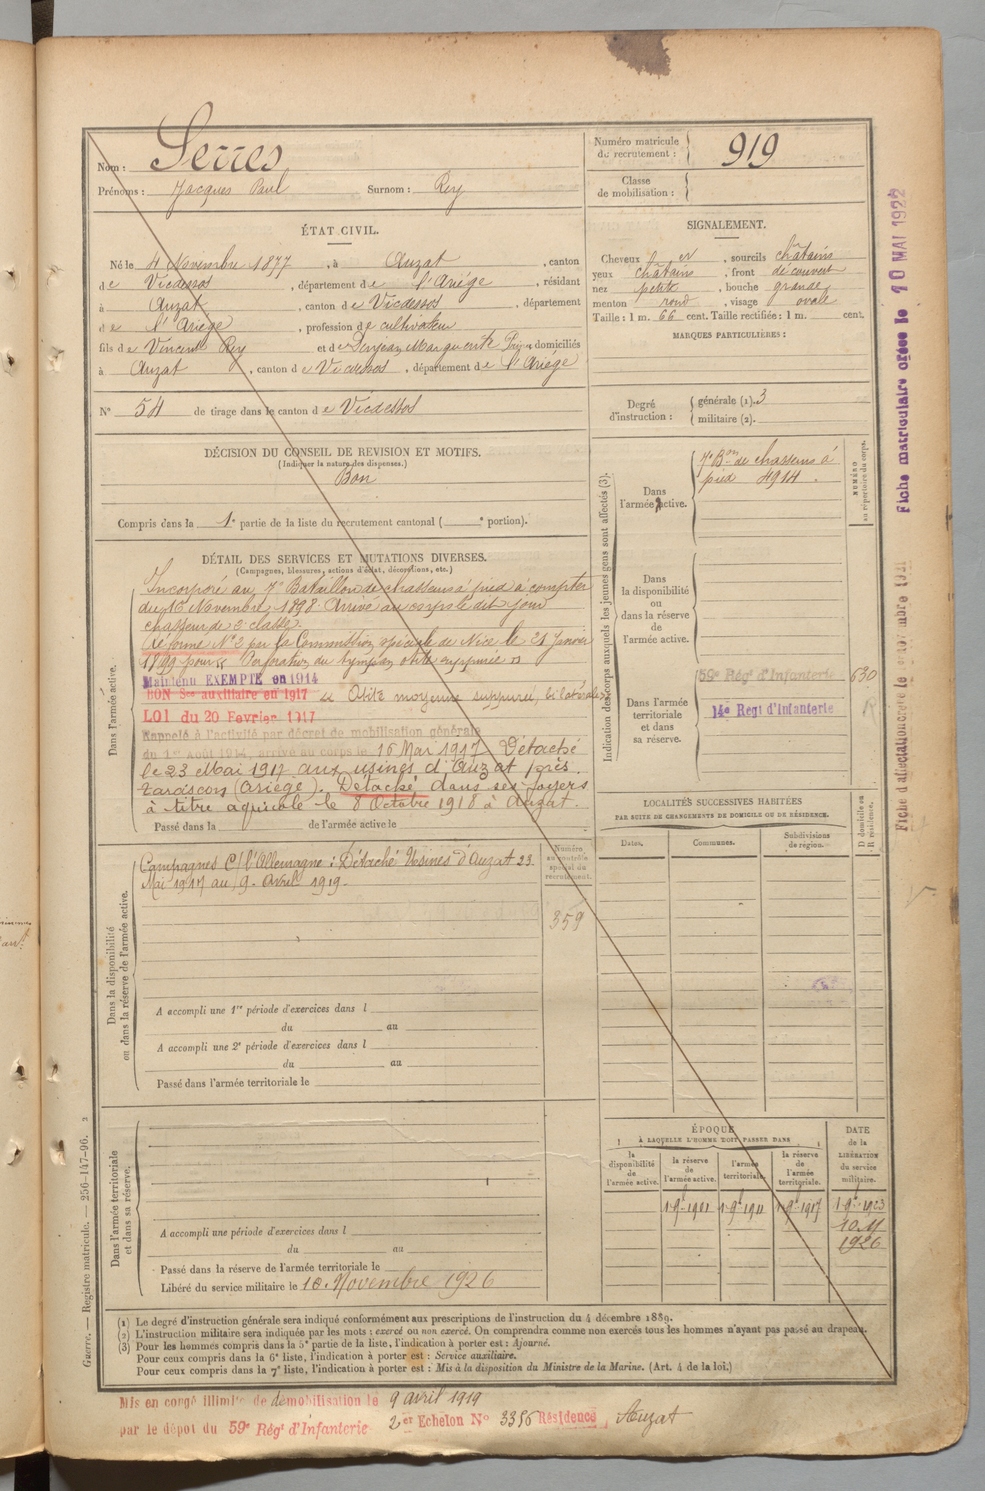 Nom : Serres
Prénoms : Jacques Paul Surnom : Rey
Numéro matricule
du recrutement : 919
Classe
de mobilisation :
ÉTAT CIVIL.
Né le 4 Novembre 1877, à Auzat, canton
de Vicdessos, département de l'Ariége, résidant
à Auzat, canton de Vicdessos, département
de l'Ariége, profession de cultivateur
fils de Vincent Rey et de Denjean Marguerite domiciliés
à Auzat, canton de Vicdessos, département de l'Ariége
N° 54 de tirage dans le canton de Vicdessos
SIGNALEMENT.
Cheveux et, sourcils châtains
yeux châtains, front découvert
nez petit, bouche grande,
menton rond, visage ovale
Taille : 1 m. 66 cent. Taille rectifiée : 1 m. cent.
MARQUES PARTICULIÈRES :
Degré
d'instruction :
générale (1). 3
militaire (2).
DÉCISION DU CONSEIL DE REVISION ET MOTIFS.
(Indiquer la nature des dispenses.)
Bon
Compris dans la 1e partie de la liste du recrutement cantonal ( e portion).
DÉTAIL DES SERVICES ET MUTATIONS DIVERSES.
(Campagnes, blessures, actions d'éclat, décorations, etc.)
Dans l'armée active.
Incorporé au 7e Bataillon de chasseurs à pied à compter
du 16 Novembre 1898. Arrivé au corps le dit jour
chasseur de 2e classe.
Réformé N° 2 par la Commission spéciale de Nice le 21 Janvier
1899 pour "Perforation du tympan otite suppurée"
Maintenu EXEMPTÉ en 1914
BON Sce auxiliaire en 1917 Otite moyenne suppurée, bilatérale
LOI du 20 Fevrier 1917
Rappelé à l'activité par décret de mobilisation générale
du 1er Août 1914, arrivé au corps le 16 Mai 1917 Détaché
le 23 Mai 1917 aux usines d'Auzat près
Tarascon (Ariége). Détaché dans ses foyers
à titre agricole le 8 Octobre 1918 à Auzat.
Passé dans la de l'armée active le
Indication des corps auxquels les jeunes gens sont affectés (3).
Dans
l'armée active.
7e Bon de chasseurs à
pied 4914.
NUMÉRO
au répertoire du corps.
Dans
la disponibilité
ou
dans la réserve
de
l'armée active.
Dans l'armée
territoriale
et dans
sa réserve.
59e Régt d'Infanterie 630
14e Regt d'Infanterie
LOCALITÉS SUCCESSIVES HABITÉES
PAR SUITE DE CHANGEMENTS DE DOMICILE OU DE RÉSIDENCE.
Dates.
Communes.
Subdivisions
de région.
D domicile ou
R résidence.
Dans la disponibilité
ou dans la réserve de l'armée active.
Campagnes C/ l'Allemagne : Détaché Usines d'Auzat 23
Mai 1917 au 9. Avril 1919.
Numéro
au contrôle
spécial du
recrutement.
359
A accompli une 1re période d'exercices dans l
du au
A accompli une 2e période d'exercices dans l
du au
Passé dans l'armée territoriale le
Dans l'armée territoriale
et dans sa réserve.
A accompli une période d'exercices dans l
du au
Passé dans la réserve de l'armée territoriale le
Libéré du service militaire le 10. Novembre 1926
ÉPOQUE
À LAQUELLE L'HOMME DOIT PASSER DANS
la
disponibilité
de
l'armée active.
la réserve
de
l'armée active.
l'armée
territoriale.
la réserve
de
l'armée
territoriale.
DATE
de la
LIBÉRATION
du service
militaire.
1 9e 1901 1 9e 1911 1 9e 1917 1 9e 1923
10 9
1926
(1) Le degré d'instruction générale sera indiqué conformément aux prescriptions de l'instruction du 4 décembre 1889.
(2) L'instruction militaire sera indiquée par les mots : exercé ou non exercé. On comprendra comme non exercés tous les hommes n'ayant pas passé au drapeau.
(3) Pour les hommes compris dans la 5e partie de la liste, l'indication à porter est : Ajourné.
Pour ceux compris dans la 6e liste, l'indication à porter est : Service auxiliaire.
Pour ceux compris dans la 7e liste, l'indication à porter est : Mis à la disposition du Ministre de la Marine. (Art. 4 de la loi.)
Mis en congé illimité de démobilisation le 9 avril 1919
par le dépot du 59e Régt d'Infanterie 2er Echelon N° 3356 Résidence Auzat
Guerre. — Registre matricule. — 256-147-96.
Fiche matriculaire créée le 10 MAI 1922